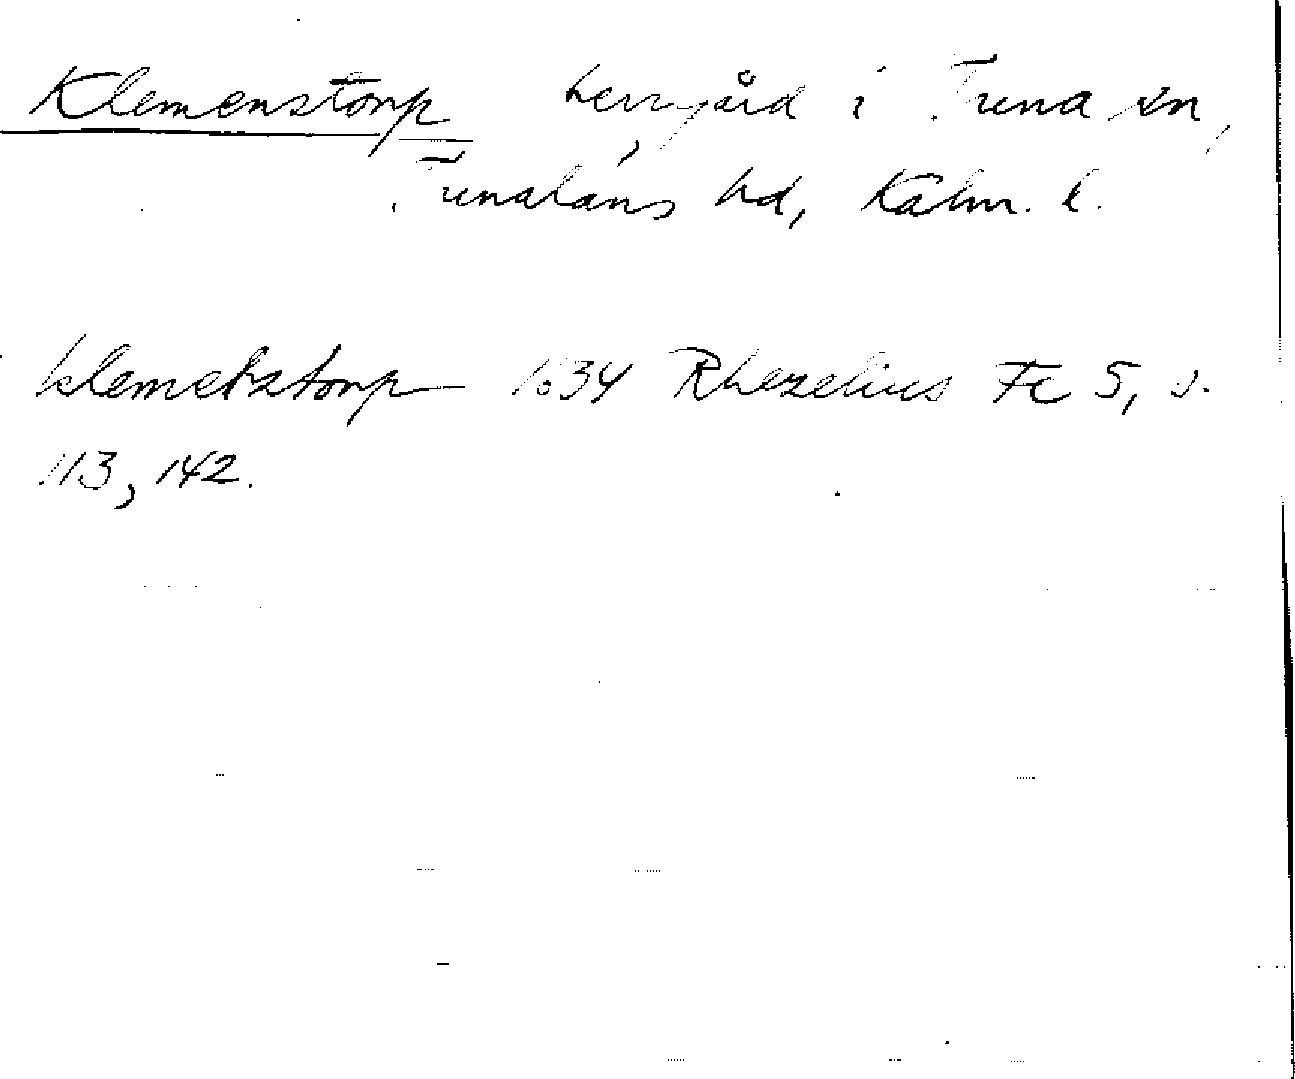 Klemenstorp herrgård i Tuna sn,
Tunaläns hd, Kalm. l.
klemetztorp 1634 Rhezelius Fc 5, s.
113, 142.